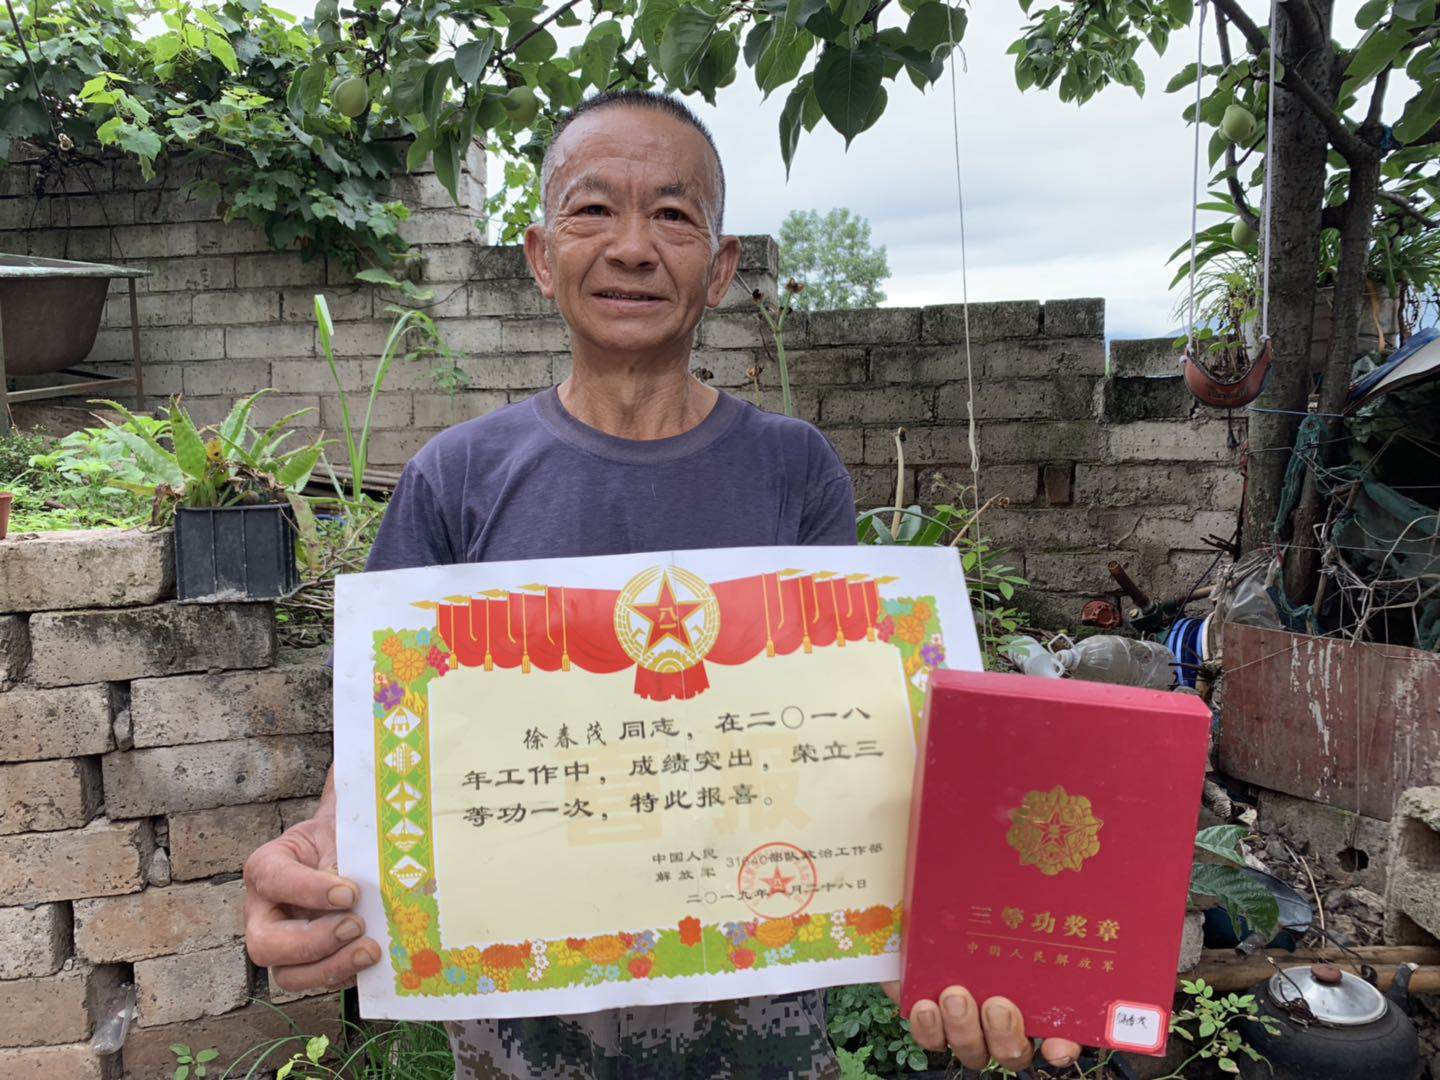 徐春茂同志，在二〇一八
年工作中，成绩突出，荣立三
等功一次，特此报喜。
中国人民
解放军 31640部队政治工作部
二〇一九年 月二十八日
三等功奖章
中国人民解放军
徐春茂